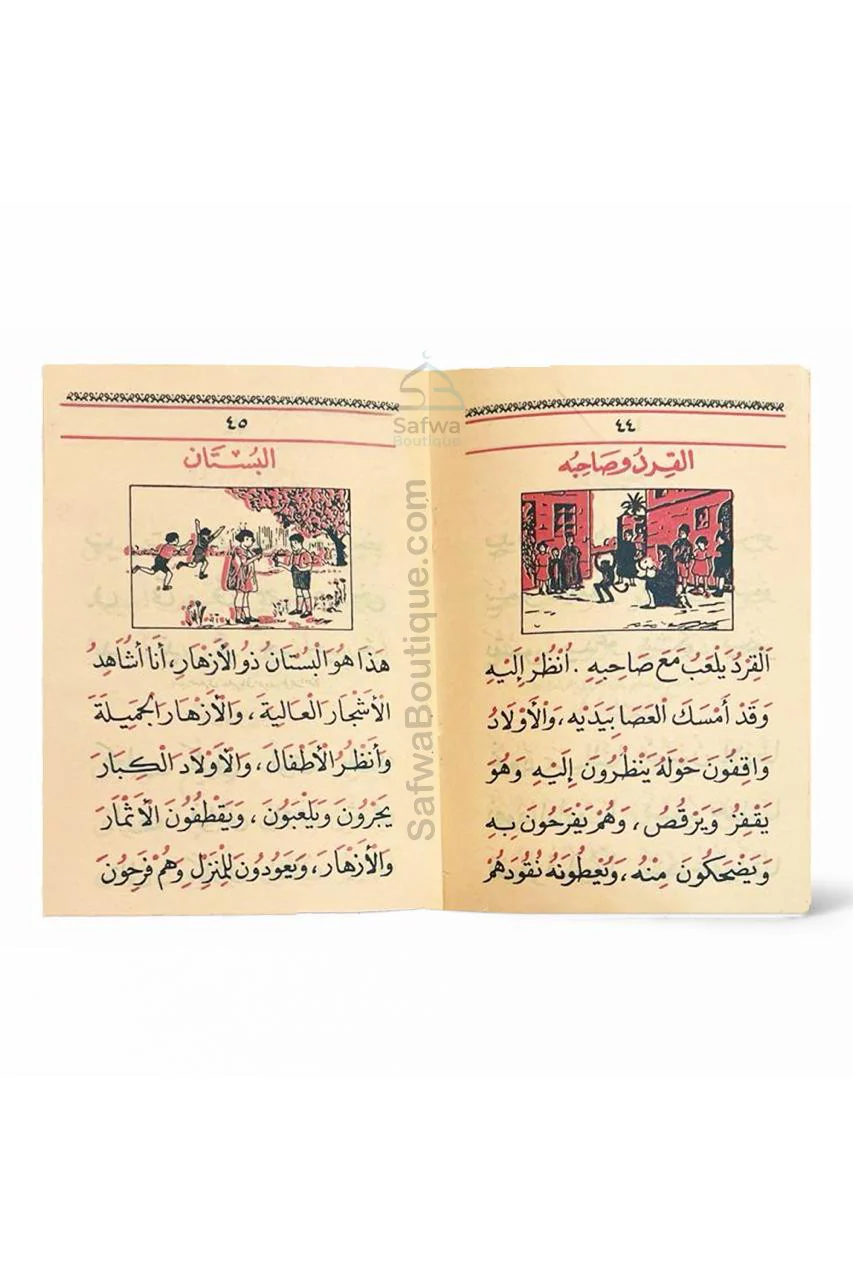 ٤٤
القِردُ وصَاحِبُه
اَلْقِرْدُ يَلْعَبُ مَعَ صَاحِبِهِ . اُنْظُرْ إِلَيْهِ
وَقَدْ أَمْسَكَ الْعَصَا بِيَدَيْهِ ، وَالْأَوْلَادُ
وَاقِفُونَ حَوْلَهُ يَنْظُرُونَ إِلَيْهِ وَهُوَ
يَقْفِزُ وَيَرْقُصُ ، وَهُمْ يَفْرَحُونَ بِهِ
وَيَضْحَكُونَ مِنْهُ ، وَيُعْطُونَهُ نُقُودَهُمْ
٤٥
البُسْتَان
هَذَا هُوَ الْبُسْتَانُ ذُو الْأَزْهَارِ ، أَنَا أُشَاهِدُ
الْأَشْجَارَ الْعَالِيَةَ ، وَالْأَزْهَارَ الْجَمِيلَةَ
وَأَنْظُرُ الْأَطْفَالَ ، وَالْأَوْلَادَ الْكِبَارَ
يَجْرُونَ وَيَلْعَبُونَ ، وَيَقْطِفُونَ الْأَثْمَارَ
وَالْأَزْهَارَ ، وَيَعُودُونَ لِلْمَنْزِلِ وَهُمْ فَرِحُونَ
Safwa
Boutique
SafwaBoutique.com